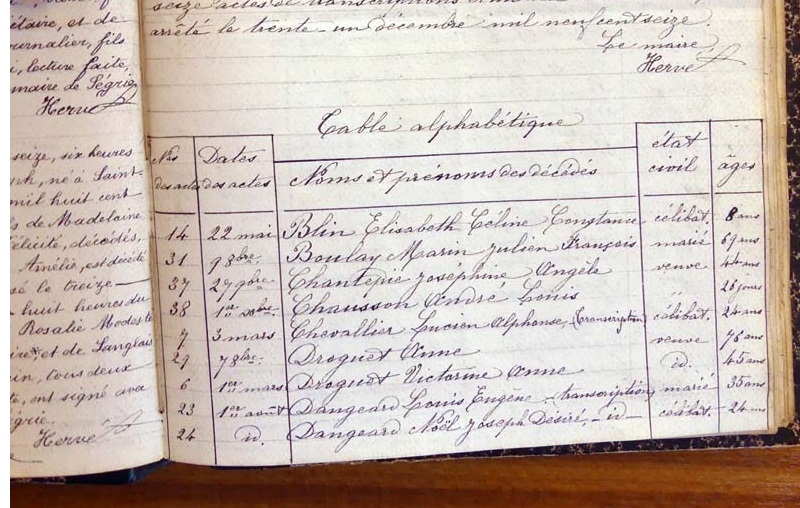 étaire, et de
ournalier, fils
i, lecture faite,
maire de Ségrie
Hervé
seize, six heures
ph, né à Saint-
mil huit cent
de Madelaine
élicité, décédés,
Amélie, est décédé
le treize
huit heures du
Rosalie Modeste
et de Langlais
in, tous deux
ont signé avec
égrie.
Hervé
seize actes de transcriptions
arrêté le trente-un décembre mil neuf cent seize.
Le maire
Hervé
Table alphabétique
Nos des actes Dates des actes Noms et prénoms des décédés état civil âges
14 22 mai Blin Elisabeth Céline Constance célibat. 8 ans
31 9 8bre. Boulay Marin Julien François marié 69 ans
37 27 9bre. Chantepie Joséphine Angèle veuve 44 ans
38 1er Chausson André Louis " 26 jours
7 3 mars Chevallier Lucien Alphonse, (transcription) célibat. 24 ans
29 7 8bre. Droguet Anne veuve 76 ans
6 1er mars Droguet Victorine Anne id. 45 ans
23 1er août Dangeard Louis Eugène - transcription marié 35 ans
24 id. Dangeard Noël Joseph Désiré, - id - célibat. 24 ans